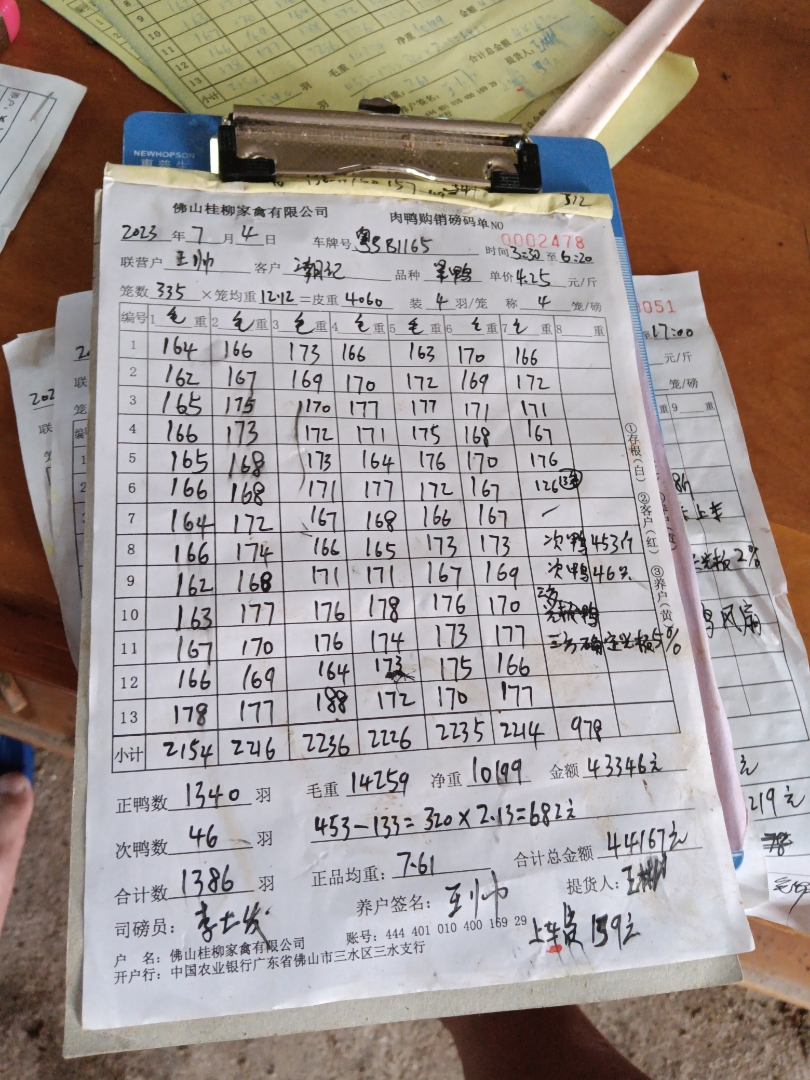 NEWHOPSON
512
佛山桂柳家禽有限公司 肉鸭购销磅码单 NO 0002478
2023年7月4日 车牌号 粤SB1165 时间3:30至6:20
联营户 王帅 客户 潮记 品种 单价4.25元/斤
笼数335×笼均重12.12=皮重4060 装4羽/笼 称4笼/磅
编号 1毛重 2毛重 3毛重 4毛重 5毛重 6毛重 7毛重 8重
1 164 166 173 166 163 170 166
2 162 167 169 170 172 169 172
3 165 175 170 177 177 171 171
4 166 173 172 171 175 168 167
5 165 168 173 164 176 170 176
6 166 168 171 177 172 167 126
7 164 172 167 168 166 167
8 166 174 166 165 173 173 次鸭453斤
9 162 168 171 171 167 169 次鸭46只
10 163 177 176 178 176 170
11 167 170 176 174 173 177
12 166 169 164 173 175 166
13 178 177 188 172 170 177
小计 2154 2216 2236 2226 2235 2214 978
①存根(白) ②客户(红) ③养户(黄)
正鸭数1340羽 毛重14259 净重10199 金额43346元
次鸭数46羽 453-133=320×2.13=682元
合计数1386羽 正品均重:7.61 合计总金额44167元
司磅员: 养户签名:王帅 提货人:
户 名:佛山桂柳家禽有限公司 账号:444 401 010 400 169 29
上车费139元
开户行:中国农业银行广东省佛山市三水区三水支行
0051
至17:00
元/斤
笼/磅
重 9 重
219元